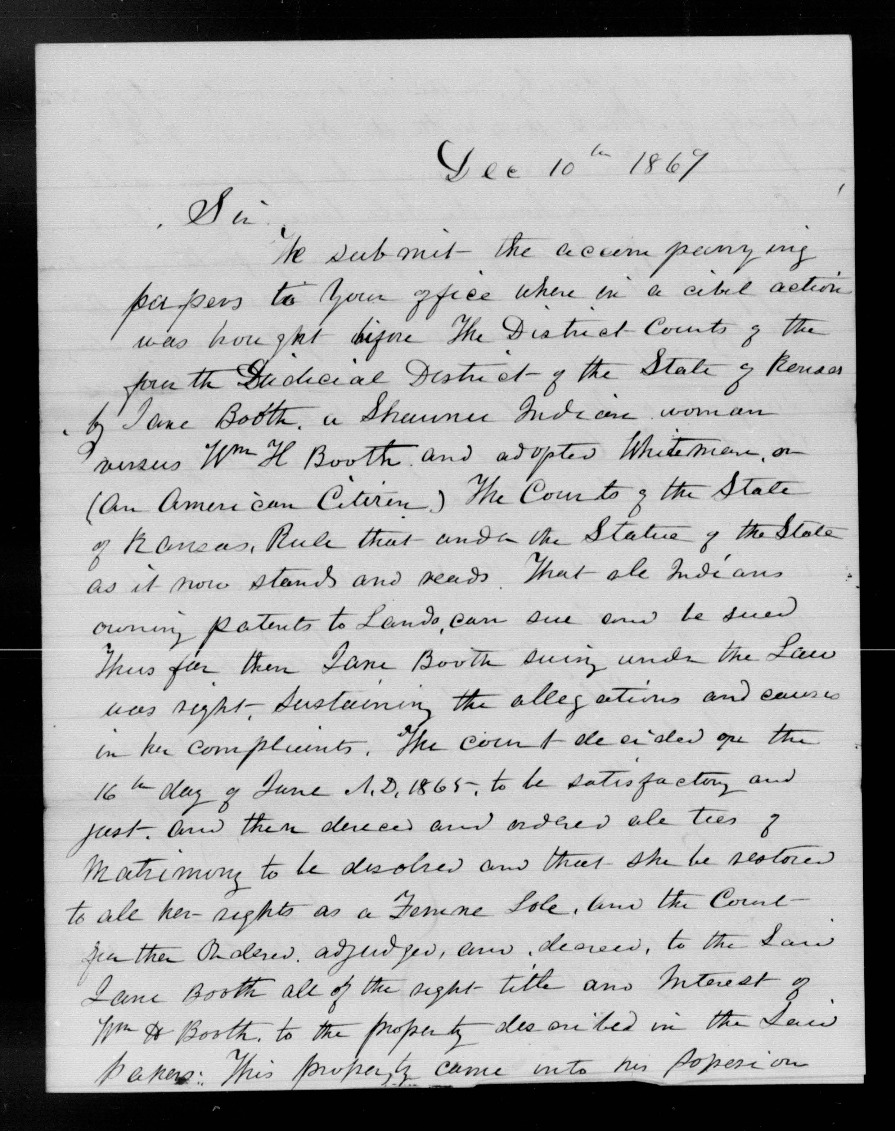 Dec 10th 1869
Sir
We submit the accompanying
papers to Your office where in a cibil action
was brought bifore The District Courts of the
fourth Judicial District of the State of Kansas
by Jane Booth, a Shawnee Indian woman
versus Wm H Booth and adopted Whiteman, or
(An American Citizen.) The Courts of the State
of Kansas, Rule that under the Statue of the State
as it now stands and reads. That all Indians
owning patents to Lands, can sue and be sued
Thus far then Jane Booth suing under the Law
was right, sustaining the allegations and causes
in her complaints. The court decided on the
16th day of June A.D. 1865, to be satisfactory and
just. and then dereced and ordered all ties of
Matrimony to be disolved and that she be restored
to all her rights as a Femme Sole, and the Court
further Ordered. adjudged, and, decreed, to the Said
Jane Booth all of the right title and Interest of
Wm H Booth. to the property described in the Said
Papers: This property came into his